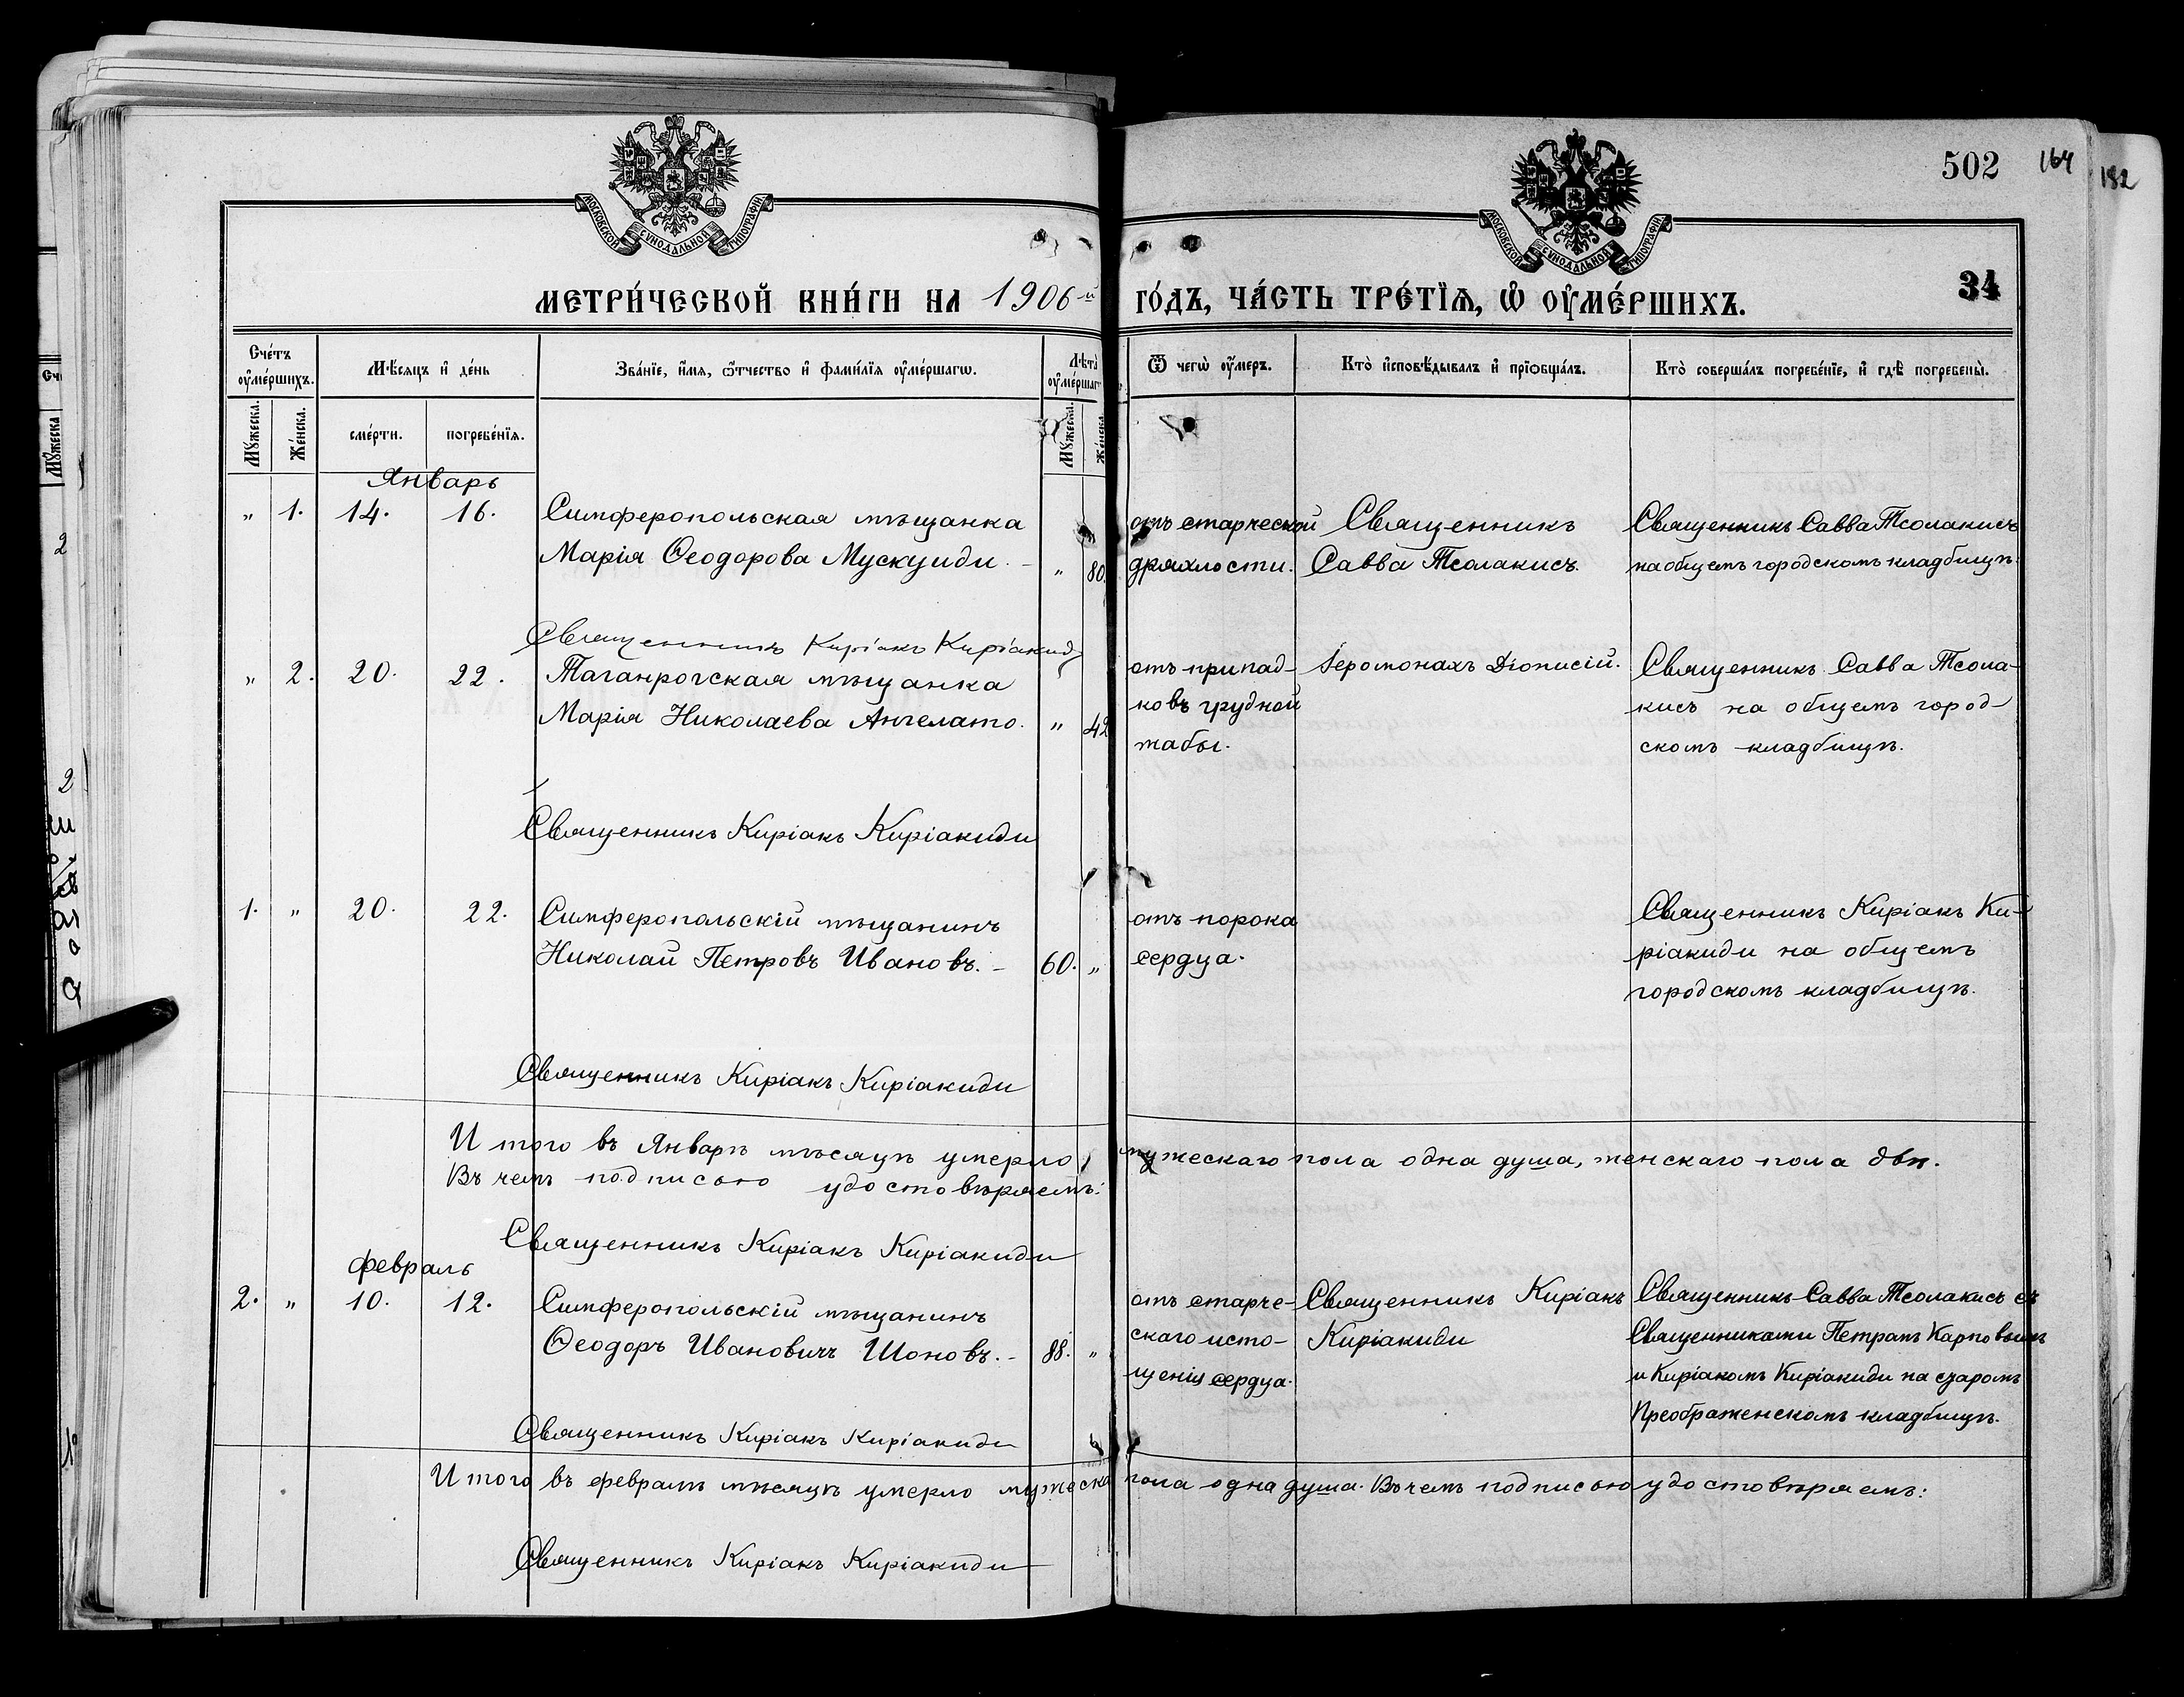 502 164 182
МОСКОВСКОЙ СѴНОДАЛЬНОЙ ТИПОГРАФІИ
МОСКОВСКОЙ СѴНОДАЛЬНОЙ ТИПОГРАФІИ
34
МЕТРИ́ЧЕСКОЙ КНИ́ГИ НА 1906-й ГО́ДЪ, ЧА́СТЬ ТРЕ́ТЇѦ, Ѡ҆ ОУ҆МЕ́РШИХЪ.
Сче́тъ оу҆ме́ршихъ.
Мѣ́сяцъ и҆ де́нь
Зва́нїе, и҆́мѧ, ѻ҆́тчество и҆ фами́лїѧ оу҆ме́ршагѡ.
Лѣ́та оу҆ме́ршаг
Ѿ чегѡ̀ оу҆́меръ.
Кто̀ и҆сповѣ́дывалъ и҆ прїѡбща́лъ.
Кто̀ соверша́лъ погребе́нїе, и҆ гдѣ̀ погребены̀.
Мꙋ́жеска.
Же́нска.
сме́рти.
погребе́нїѧ.
Мꙋ́жеска.
Же́нска
Январь
" 1. 14. 16. Симферопольская мѣщанка
Марія Ѳеодорова Мускуиди. - " 80.
отъ старческой
дряхлости.
Священникъ
Савва Тсолакисъ.
Священникъ Савва Тсолакисъ
на общемъ городскомъ кладбищѣ.
Священникъ Киріакъ Киріакиди
" 2. 20. 22. Таганрогская мѣщанка
Марія Николаева Ангелато. " 42
отъ припад-
ковъ грудной
жабы.
Іеромонахъ Діонисій.
Священникъ Савва Тсола-
кисъ на общемъ город-
скомъ кладбищѣ.
Священникъ Киріакъ Киріакиди
1. " 20. 22. Симферопольскій мѣщанинъ
Николай Петровъ Ивановъ. - 60. "
отъ порока
сердца.
Священникъ Киріакъ Ки-
ріакиди на общемъ
городскомъ кладбищѣ.
Священникъ Киріакъ Киріакиди
Итого въ Январѣ мѣсяцѣ умерло мужескаго пола одна душа, женскаго пола двѣ.
Въ чемъ подписью удостовѣряемъ:
Священникъ Киріакъ Киріакиди
февраль
2. " 10. 12. Симферопольскій мѣщанинъ
Ѳеодоръ Ивановичъ Шоновъ. - 88. "
отъ старче-
скаго исто-
щенія сердца.
Священникъ Киріакъ
Киріакиди
Священникъ Савва Тсолакисъ съ
Священниками Петромъ Карповымъ
и Киріакомъ Киріакиди на старомъ
Преображенскомъ кладбищѣ.
Священникъ Киріакъ Киріакиди
Итого въ февралѣ мѣсяцѣ умерло мужеска пола одна душа. Въ чемъ подписью удостовѣряемъ:
Священникъ Киріакъ Киріакиди